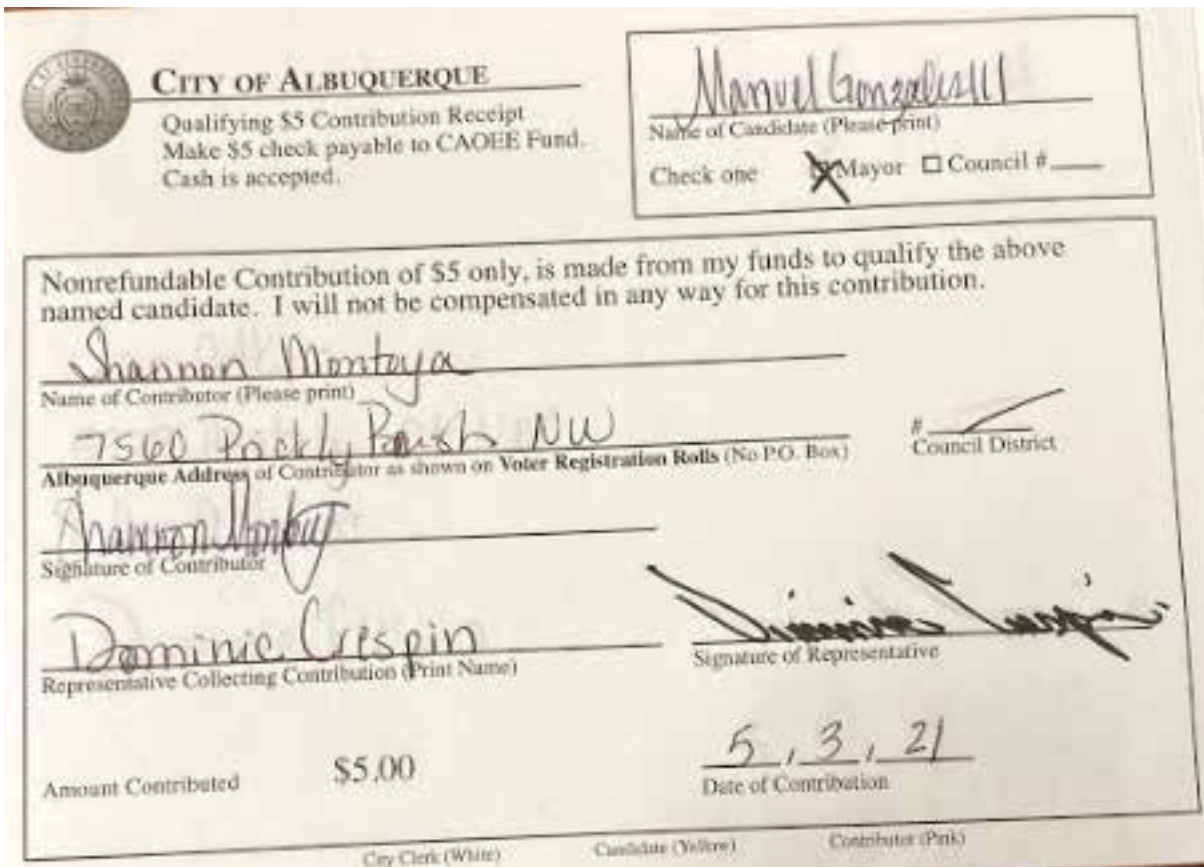 CITY OF ALBUQUERQUE
Qualifying $5 Contribution Receipt
Make $5 check payable to CAOEE Fund.
Cash is accepted.
Manuel Gonzales III
Name of Candidate (Please print)
Check one Mayor Council #
Nonrefundable Contribution of $5 only, is made from my funds to qualify the above
named candidate. I will not be compensated in any way for this contribution.
Shannon Montoya
Name of Contributor (Please print)
7560 Prickly NW
#
Albuquerque Address of Contributor as shown on Voter Registration Rolls (No P.O. Box)
Council District
Shannon
Signature of Contributor
Dominic Crespin
Representative Collecting Contribution (Print Name)
Dominic Crespin
Signature of Representative
Amount Contributed $5.00
5, 3, 21
Date of Contribution
City Clerk (White) Candidate (Yellow) Contributor (Pink)